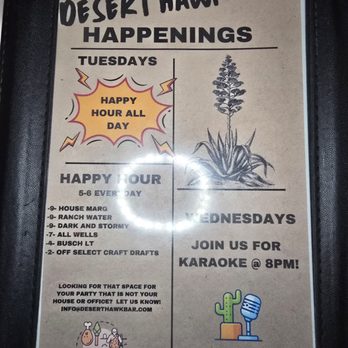 DESERT HAWK
HAPPENINGS
TUESDAYS
HAPPY
HOUR ALL
DAY
HAPPY HOUR
5-6 EVERYDAY
-9- HOUSE MARG
-9- RANCH WATER
-9- DARK AND STORMY
-7- ALL WELLS
-4- BUSCH LT
-2- OFF SELECT CRAFT DRAFTS
LOOKING FOR THAT SPACE FOR
YOUR PARTY THAT IS NOT YOUR
HOUSE OR OFFICE? LET US KNOW!
INFO@DESERTHAWKBAR.COM
WEDNESDAYS
JOIN US FOR
KARAOKE @ 8PM!